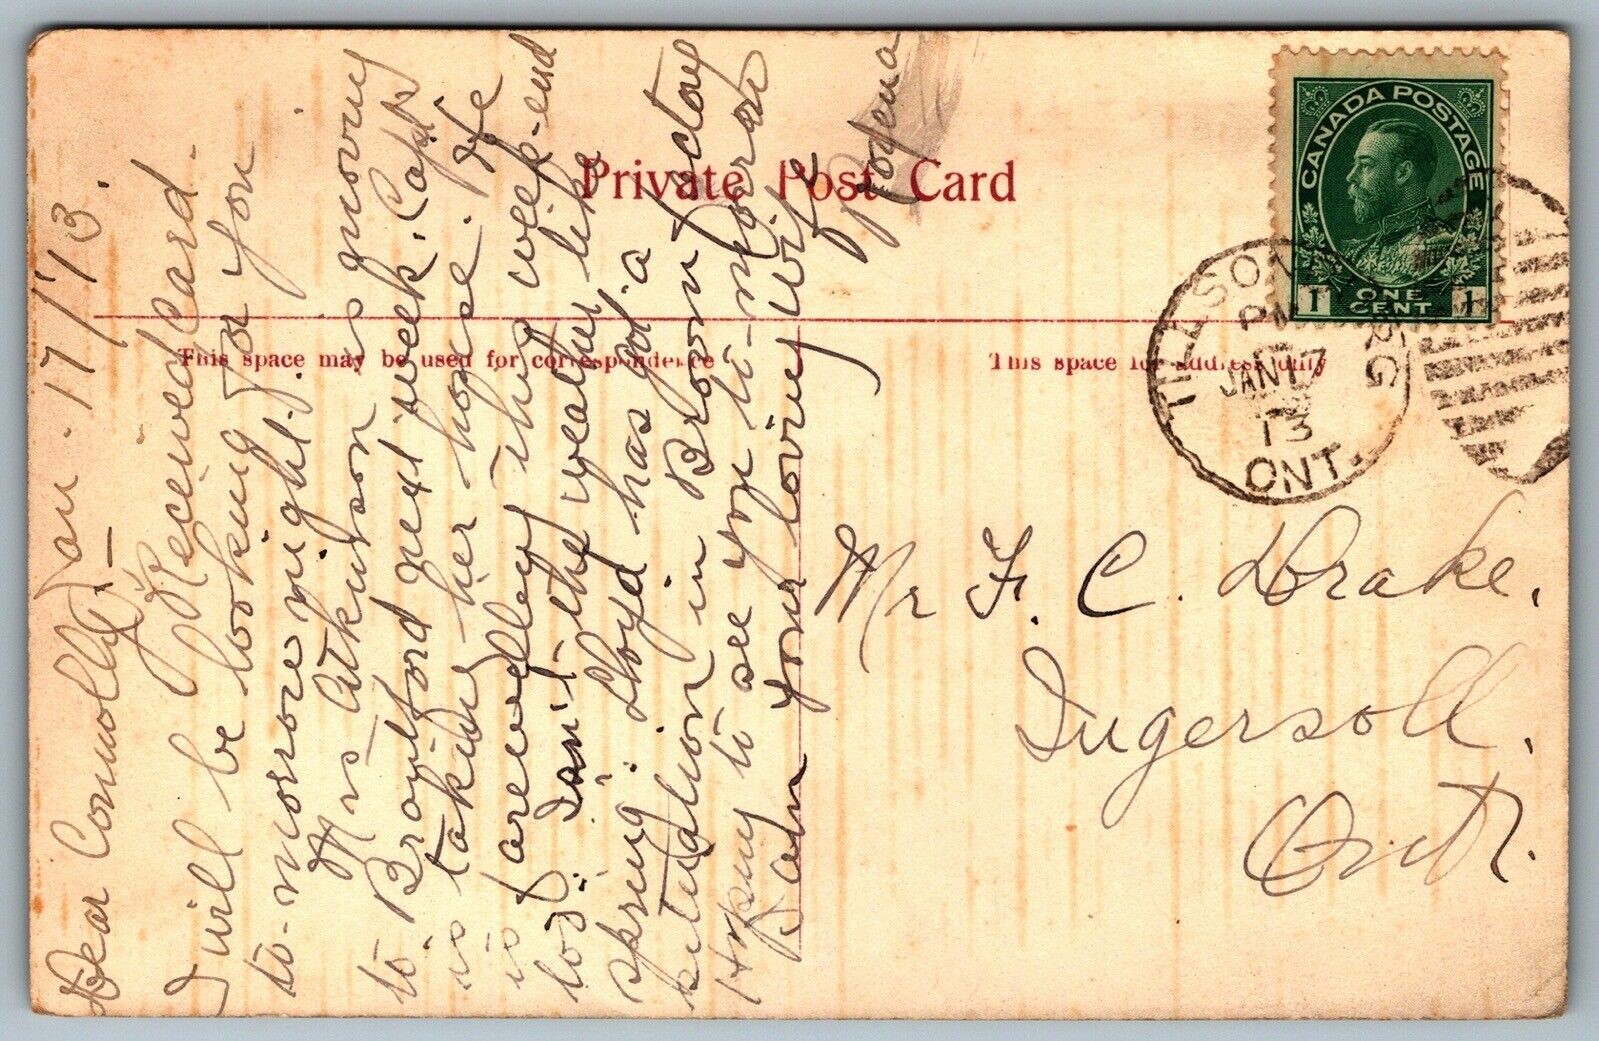 Private Post Card
This space may be used for correspondence
This space for address only
CANADA POSTAGE
1 ONE CENT 1
TILLSONBURG
PM
JAN 17
13
ONT.
Mr F. C. Drake.
Ingersoll.
Ont.
Jan. 17/13.
Dear Connolly:–
Received card.
I will be looking for you
to-morrow night.
Mrs Atkinson is moving
to Brantford next week. Capt
is taking her house. He
is farewelling this week-end
too. Isn't the weather like
spring. Lloyd has got a
situation in Brown factory
Hoping to see you to-morrow
I am your loving wife
Rofena